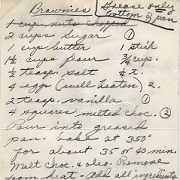 Brownies
Grease only
bottom of pan
1 cup nuts chopped
2 cups sugar ①
1 cup butter 1 stik
1½ cups flour ¾ cup.
½ teasp. salt ¼ t.
4 eggs (well beaten) 2.
2 teasp. vanilla ①
4 squares melted choc. ②
Pour into greased
pan. Bake at 350°
for about 35 or 40 min.
Melt choc. & oleo. Remove
from heat. Add all ingredients